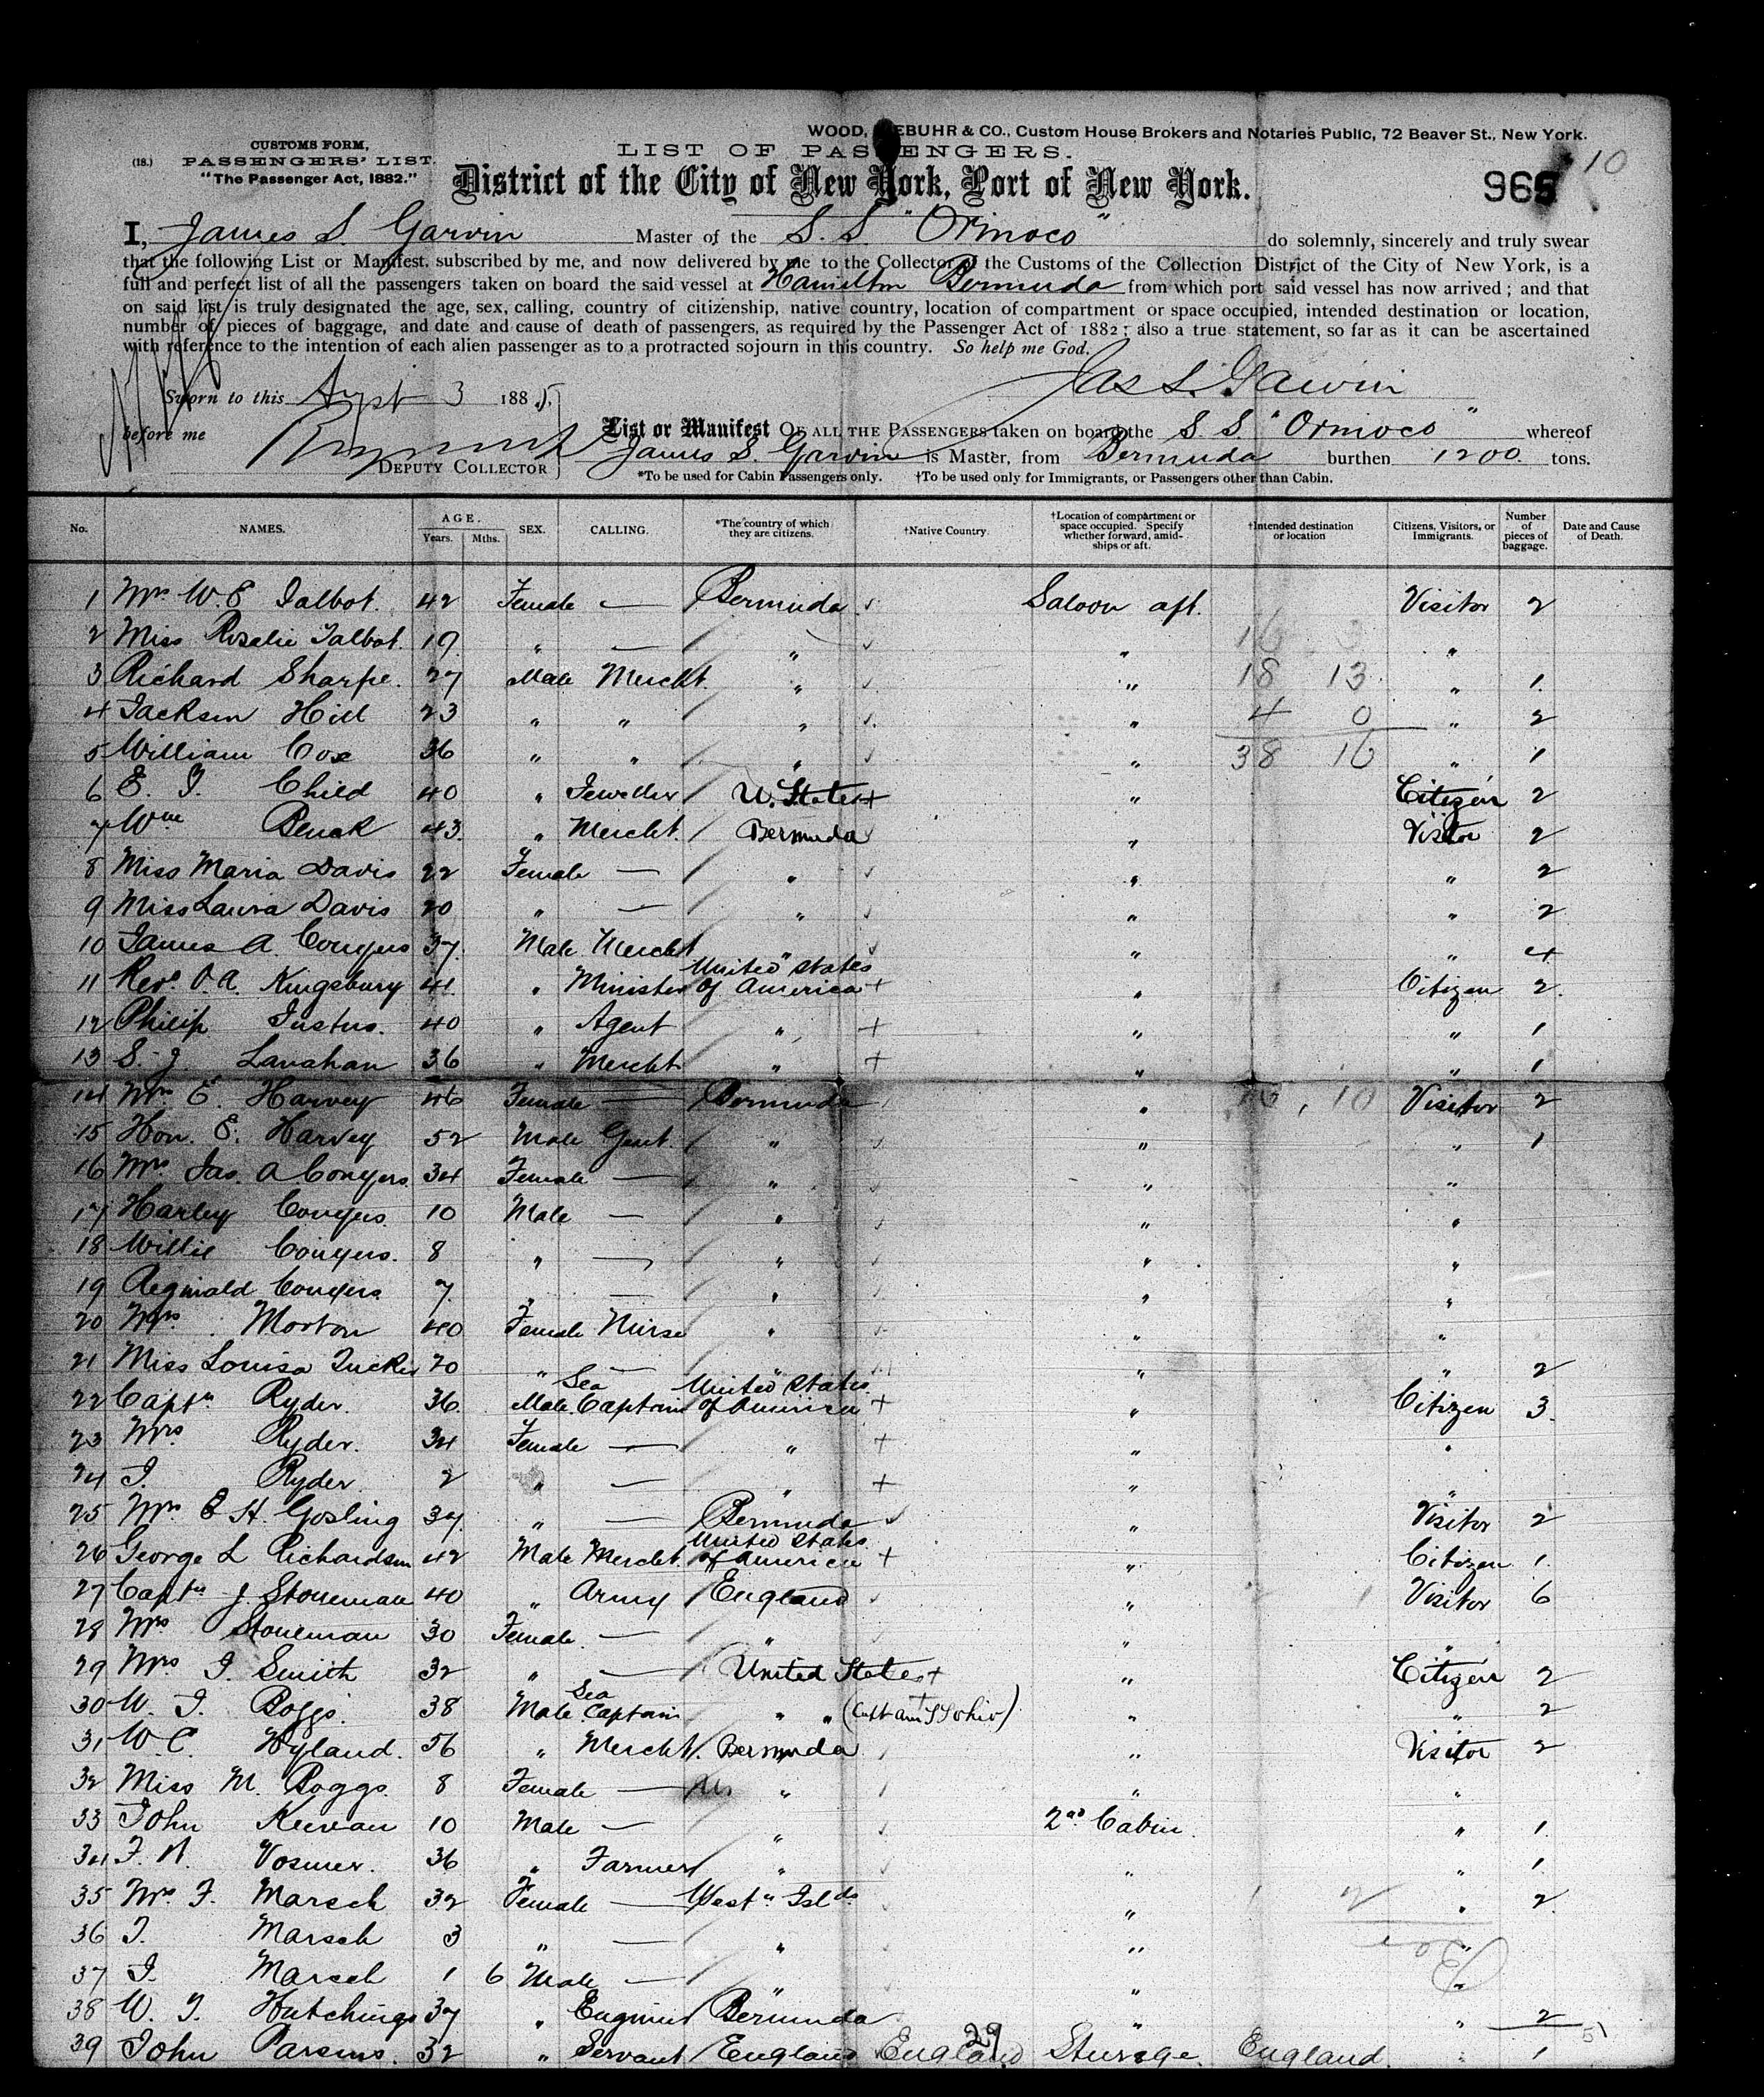 WOOD, & CO., Custom House Brokers and Notaries Public, 72 Beaver St., New York.
CUSTOMS FORM,
(18.) PASSENGERS' LIST.
"The Passenger Act, 1882."
LIST OF PASSENGERS.
District of the City of New York, Port of New York.
10
I, James S. Garvin Master of the S. S. "Orinoco" do solemnly, sincerely and truly swear
that the following List or Manifest, subscribed by me, and now delivered by me to the Collector of the Customs of the Collection District of the City of New York, is a
full and perfect list of all the passengers taken on board the said vessel at Hamilton Bermuda from which port said vessel has now arrived; and that
on said list is truly designated the age, sex, calling, country of citizenship, native country, location of compartment or space occupied, intended destination or location,
number of pieces of baggage, and date and cause of death of passengers, as required by the Passenger Act of 1882; also a true statement, so far as it can be ascertained
with reference to the intention of each alien passenger as to a protracted sojourn in this country. So help me God.
Jas S. Garvin
Sworn to this Augst 3 1885,
before me
DEPUTY COLLECTOR
List or Manifest OF ALL THE PASSENGERS taken on board the S. S. "Orinoco" whereof
James S. Garvin is Master, from Bermuda burthen 1200 tons.
*To be used for Cabin Passengers only. †To be used only for Immigrants, or Passengers other than Cabin.
No. NAMES. AGE. Years. Mths. SEX. CALLING. *The country of which they are citizens. †Native Country. †Location of compartment or space occupied. Specify whether forward, amidships or aft. †Intended destination or location Citizens, Visitors, or Immigrants. Number of pieces of baggage. Date and Cause of Death.
1 Mrs W. E Talbot. 42 Female — Bermuda Saloon aft. Visitor 2
2 Miss Rosalie Talbot. 19 " — " " "
3 Richard Sharpe. 27 Male Mercht. " " 18 13 " 1
4 Jackson Hill 23 " " " " 4 0 " 2
5 William Cox 36 " " " " 38 16 " 1
6 E. J. Child 40 " Jeweller U. States + " Citizen 2
7 Wm 43 " Mercht. Bermuda " Visitor 2
8 Miss Maria Davis 22 Female — " " " 2
9 Miss Laura Davis 20 " — " " " 2
10 James A. Conyers 37 Male Mercht " " " 4
11 Revd O. A. Kingsbury 41 " Minister United States of America + " Citizen 2
12 Philip Justus. 40 " Agent " + " " 1
13 S. J. Lanahan 36 " Mercht " + " " 1
14 Mrs E. Harvey 46 Female — Bermuda " Visitor 2
15 Hon. E. Harvey 52 Male Gent. " " " 1
16 Mrs Jas. A Conyers 34 Female — " " "
17 Harley Conyers 10 Male — " " "
18 Willie Conyers. 8 " — " " "
19 Reginald Conyers 7 " — " " "
20 Mrs Morton 40 Female Nurse " " "
21 Miss Louisa Tucker 20 " — " " " 2
22 Captn Ryder. 36 Male Sea Captain United States of America + " Citizen 3
23 Mrs Ryder. 34 Female — " + " "
24 J. Ryder 2 " — " + " "
25 Mrs E H. Gosling 37 " — Bermuda " Visitor 2
26 George L Richardson 42 Male Mercht. United States of America + " Citizen 1
27 Captn J. Stoneman 40 " Army England " Visitor 6
28 Mrs Stoneman 30 Female — " " "
29 Mrs J. Smith 32 " — United States + " Citizen 2
30 W. J. Boggs. 38 Male Sea Captain " " " " 2
31 W. C. Hyland. 56 " Mercht. Bermuda " Visitor 2
32 Miss M. Boggs. 8 Female — " " "
33 John Keevan 10 Male — " 2nd Cabin " 1
34 F. A. Vosmer. 36 " Farmer " " " 1
35 Mrs F. Marsch 32 Female — Westn Islds " " 2
36 J. Marsch 3 " — " " "
37 J. Marsch 1 6 Male — " " "
38 W. J. Hutchings 37 " Engineer Bermuda " " 2
39 John Parsons. 32 " Servant England England 29 Steerage England " 1
51